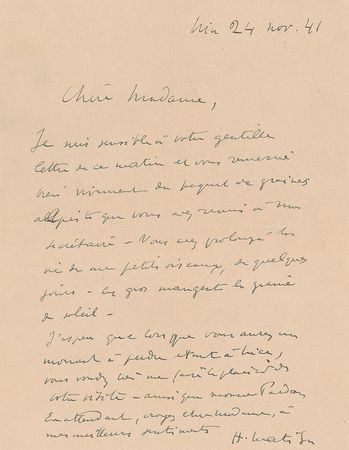 Nice 24 nov. 41
Chère Madame,
Je suis sensible à votre gentille
lettre de ce matin et vous remercie
bien vivement du paquet de graines
alpiste que vous avez remis à ma
secrétaire – Vous avez prolongé la
vie de mes petits oiseaux, de quelques
jours – les gros mangent la graine
de soleil –
J'espère que lorsque vous aurez un
moment à perdre étant à Nice,
vous voudrez bien me faire le plaisir de
votre visite – ainsi que monsieur
En attendant, croyez chère madame, à
mes meilleurs sentiments
H. Matisse